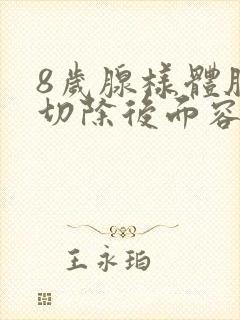 8歲腺樣體肥
切除後面容
王永珀